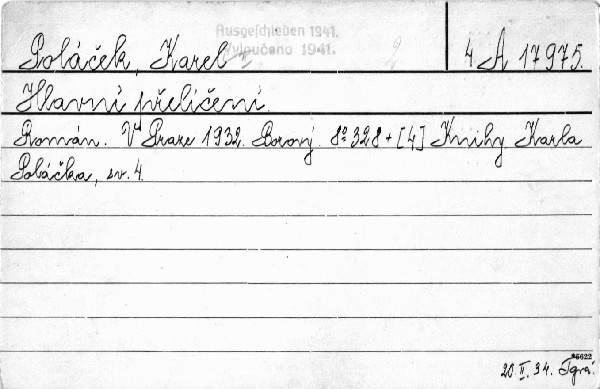 Ausgeschieden 1941.
Vyloučeno 1941.
Poláček, Karel
4 A 17975.
Hlavní přelíčení.
Román. V Praze 1932. Borový. 8° 328 + [4] Knihy Karla
Poláčka, sv. 4.
20 II. 34.